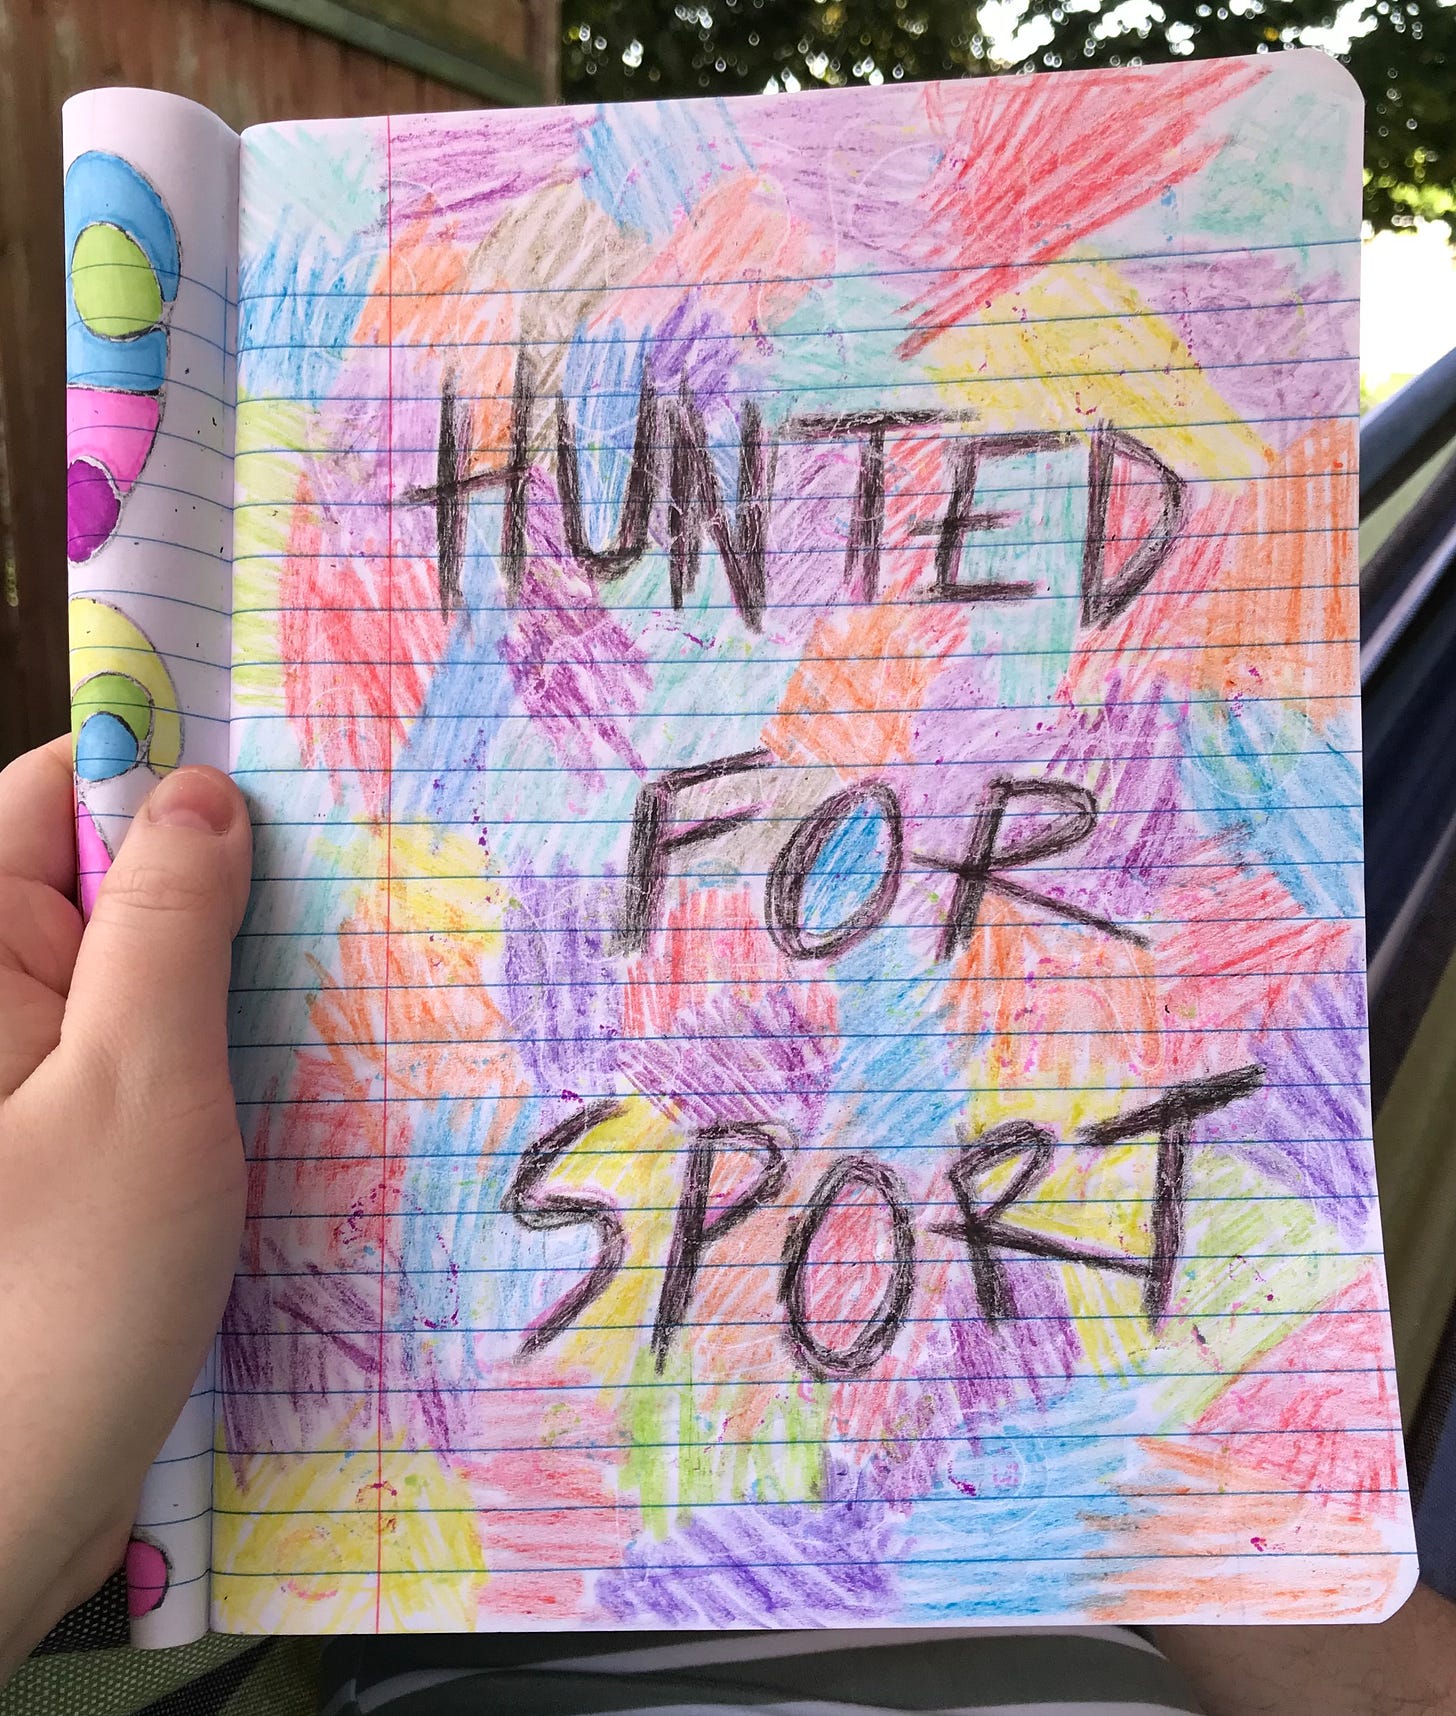 HUNTED
FOR
SPORT